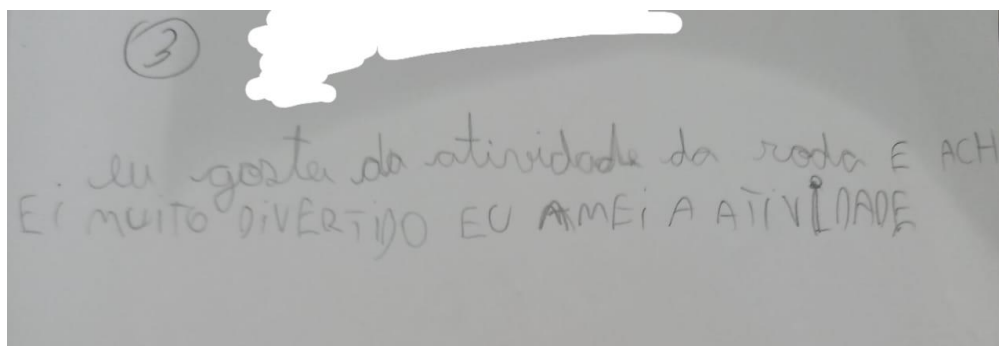 3
eu gostei da atividade da roda E ACH
Ei MUITO DiVERTiDO EU AMEi A ATiVIDADE